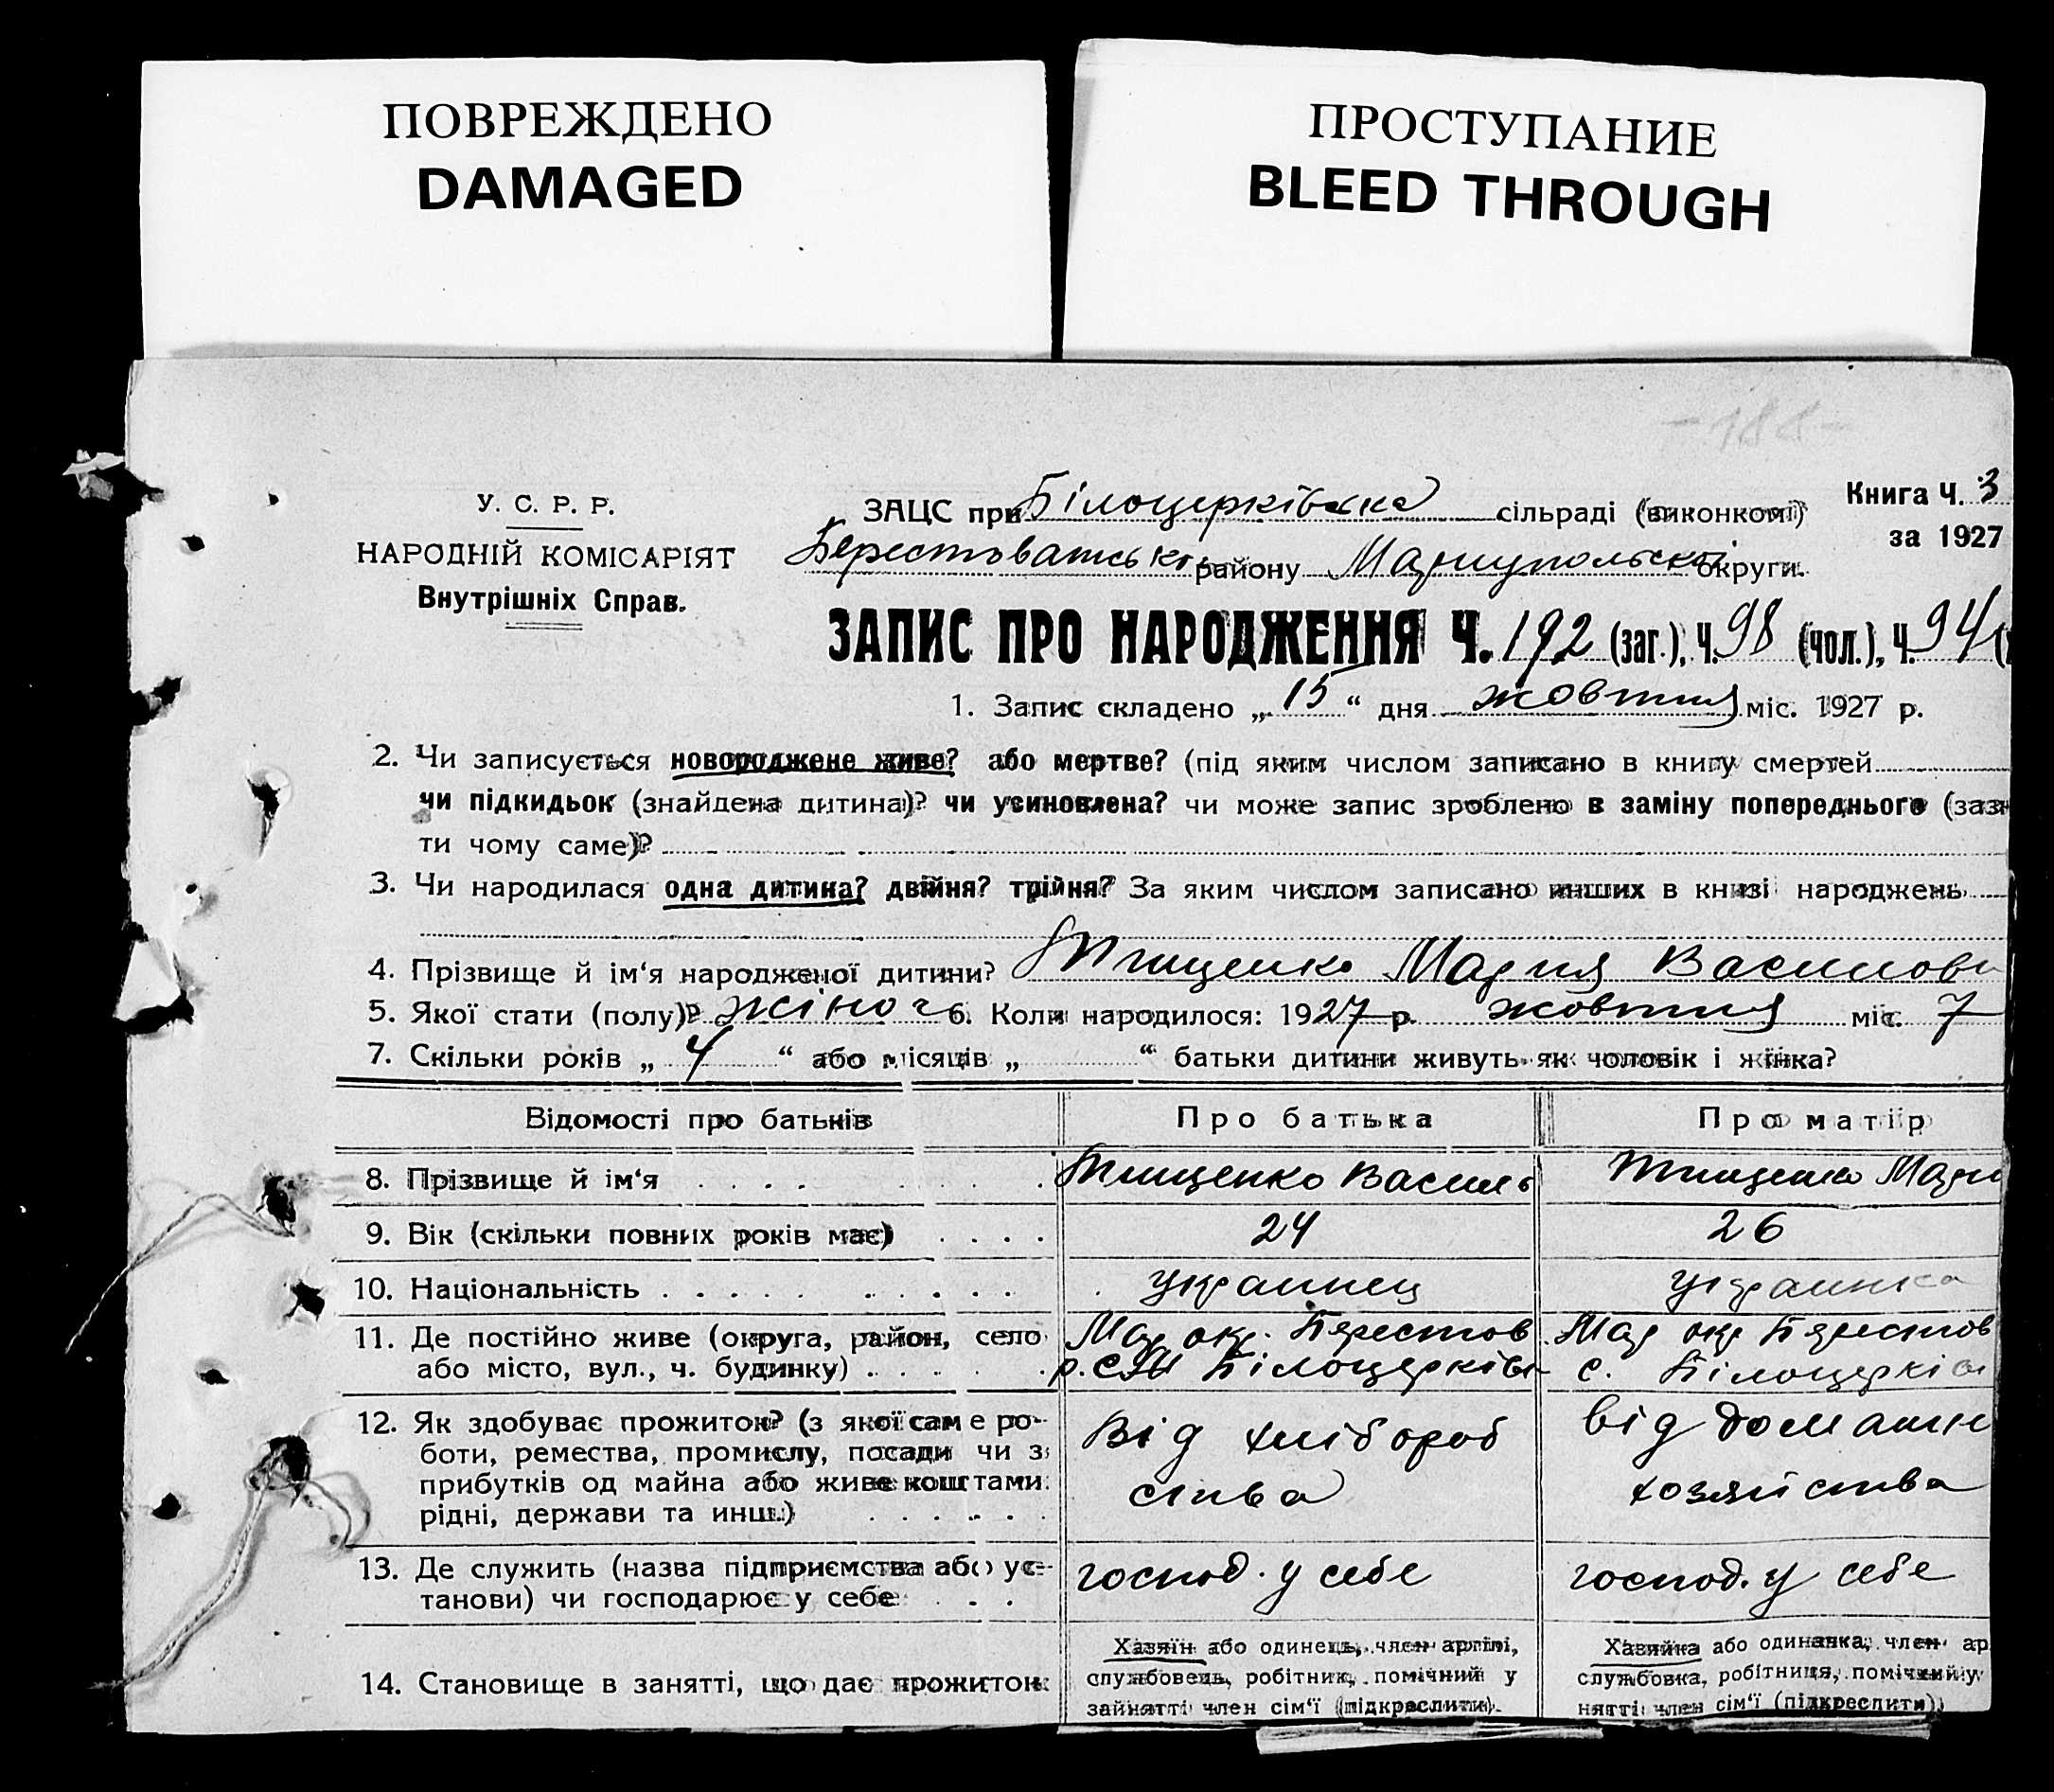 ПОВРЕЖДЕНО
DAMAGED
ПРОСТУПАНИЕ
BLEED THROUGH
-188-
У. С. Р. Р.
НАРОДНІЙ КОМІСАРІЯТ
Внутрішніх Справ.
ЗАЦС при Білоцерківска сільраді (виконкомі)
Берестоватсько району Мариупольської округи.
Книга Ч. 3
за 1927
ЗАПИС ПРО НАРОДЖЕННЯ Ч. 192 (заг.), Ч. 98 (чол.), Ч. 94 (
1. Запис складено „ 15 “ дня жовтня міс. 1927 р.
2. Чи записується новороджене живе? або мертве? (під яким числом записано в книгу смертей
чи підкидьок (знайдена дитина)? чи усиновлена? чи може запис зроблено в заміну попереднього (зазн
ти чому саме)?
3. Чи народилася одна дитина? двійня? трійня? За яким числом записано инших в книзі народжень
4. Прізвище й ім‘я народженої дитини? Тищенко Мария Василов
5. Якої стати (полу)? жіноч 6. Коли народилося: 1927 р. жовтня міс. 7
7. Скільки років „ 4 “ або місяців „ “ батьки дитини живуть як чоловік і жінка?
Відомості про батьків
Про батька
Про матір
8. Прізвище й ім‘я
Тищенко Василь
Тищенко Мари
9. Вік (скільки повних років має)
24
26
10. Національність
украинец
украинка
11. Де постійно живе (округа, район, село
або місто, вул., ч. будинку)
Мар окр. Берестов
р. Білоцерків
Мар окр Берестов
с. Білоцерків
12. Як здобуває прожиток? (з якої саме ро-
боти, ремества, промислу, посади чи з
прибутків од майна або живе коштами
рідні, держави та инш.)
Від хлібороб
ства
від домашн
хозяйства
13. Де служить (назва підприємства або ус-
танови) чи господарює у себе
господ. у себе
господ. у себе
14. Становище в занятті, що дає прожиток
Хазяїн або одинець, член артілі,
службовець, робітник, помічний у
зайнятті член сім‘ї (підкреслити).
Хазяйка або одиначка, член ар
службовка, робітниця, помічний у
нятті член сім‘ї (підкреслити)